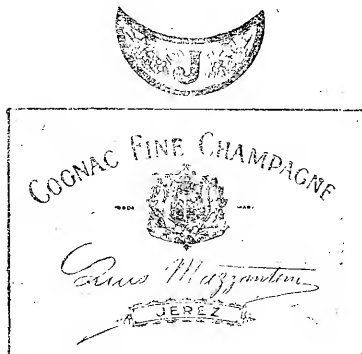 J
COGNAC FINE CHAMPAGNE
Luis Mazzantini
JEREZ